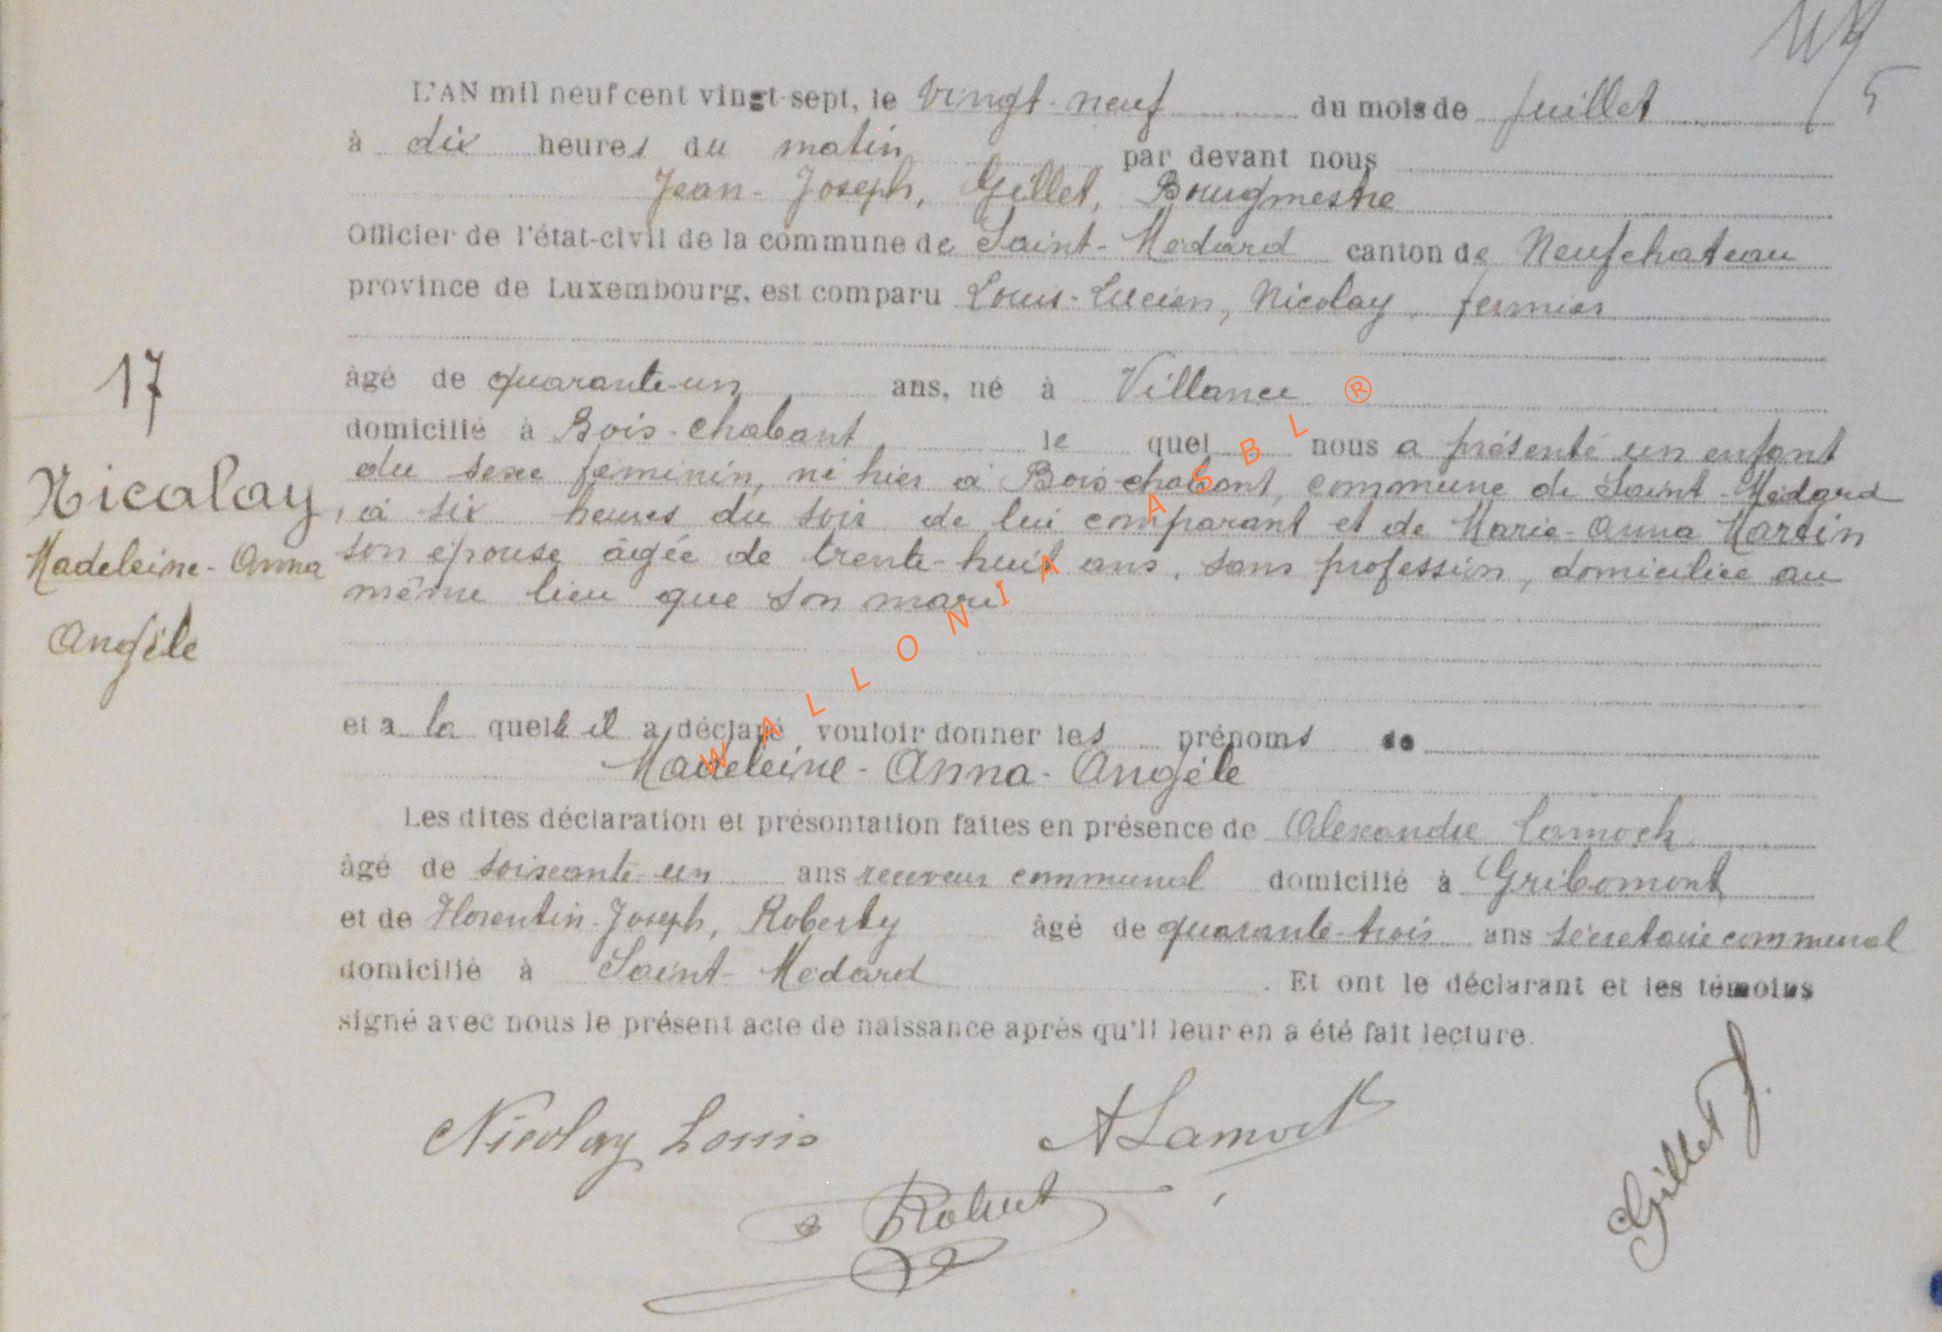 L'AN mil neuf cent vingt-sept, le vingt-neuf du mois de juillet
à dix heures du matin par devant nous
Jean-Joseph, Gillet, Bourgmestre
Officier de l'état-civil de la commune de Saint-Médard canton de Neufchateau
province de Luxembourg, est comparu Louis-Lucien, Nicolay, fermier
17
âgé de quarante-un ans, né à Villance
domicilié à Bois-chabant, le quel nous a présenté un enfant
Nicolay
Madeleine-Anna
Angèle
du sexe féminin, né hier à Bois-chabant, commune de Saint-Médard
, à six heures du soir de lui comparant et de Marie-Anna Martin
son épouse âgée de trente-huit ans, sans profession, domiciliée au
même lieu que son mari
et a la quelle il a déclaré vouloir donner les prénoms de
Madeleine-Anna-Angèle
Les dites déclaration et présontation faites en présence de Alexandre Lamock
âgé de soixante-un ans receveur communal domicilié à Gribomont
et de Florentin-Joseph, Roberty âgé de quarante-trois ans sécretaire communal
domicilié à Saint-Médard. Et ont le déclarant et les témoins
signé avec nous le présent acte de naissance après qu'il leur en a été fait lecture.
Nicolay Louis
A Lamock
Gillet J.
WALLONIA ASBL ®